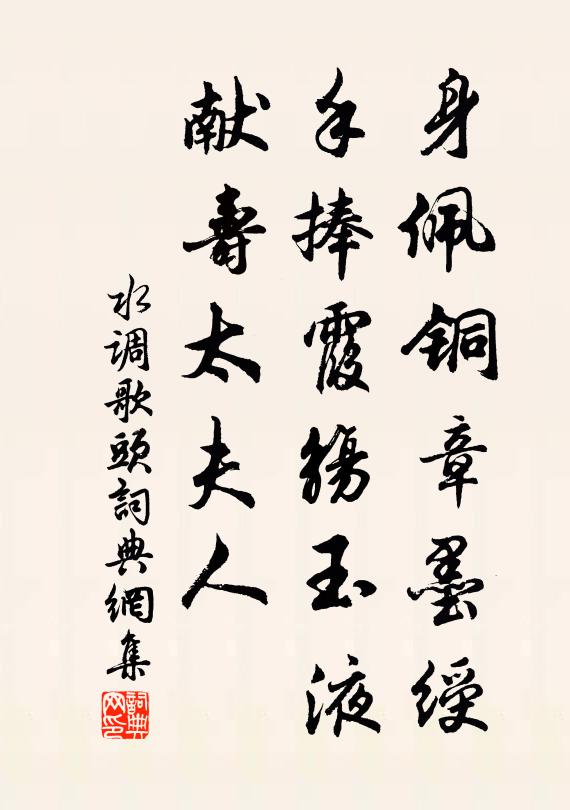 身佩铜章墨绶
手捧霞觞玉液
献寿太夫人
水调歌頭詞典網集
詞典网印